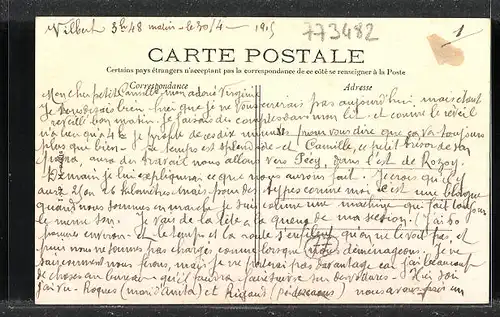 Wilbert 3h48 matin - le 30/4 - 1915
773482
1
CARTE POSTALE
Certains pays étrangers n'acceptant pas la correspondance de ce côté se renseigner à la Poste
Correspondance
Adresse
Mon cher petit Camille, mon adoré Virginie
Je disais bien hier que je ne vous pas aujourd'hui, mais étant
réveillé bon matin. Je faisais des comptes dans mon lit - et comme le réveil
n'a lieu qu'à 4h je profite de ces dix minutes pour vous dire que ça va toujours
plus que bien - Le temps est splendide - et Camille, ce petit trésor de son
papa, aura du travail nous allons vers Pécy, dans l'est de Rozoy.
Demain je lui expliquerai ce que nous aurons fait. Je crois qu'il y
aura 25 ou 28 kilomètres mais pour des types comme moi c'est une blague
quand nous sommes en marche je suis comme une machine qui fait toujours
le même son. Je vais de la tête à la queue de ma section (j'ai 60
hommes environ - et le temps et la route s'enfilent qu'on ne le voit pas et
puis nous ne sommes pas chargés comme lorsque nous déménageons. Je ne
sais comment nous ferons, mais je ne parlerai pas davantage car j'ai beaucoup
de choses au bureau - Hier soir
j'ai vu - Roques (mari d'Anita) et Rigaud nous avons pris un